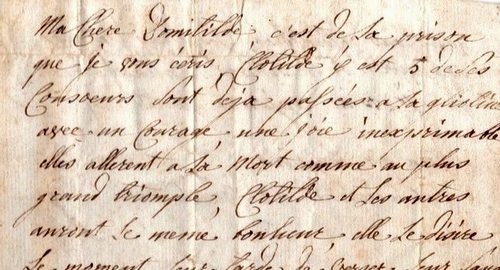 Ma Chere Domitilde c'est de la prison
que je vous écris Clotilde et 5 de ses
Consoeurs sont deja passées a la guillotin
avec un Courage une joie inexprimable
elles allerent a la Mort comme au plus
grand triomple, Clotilde et les autres
auront le meme bonheur, elle le desire
Le moment leur tarde de verser leur san